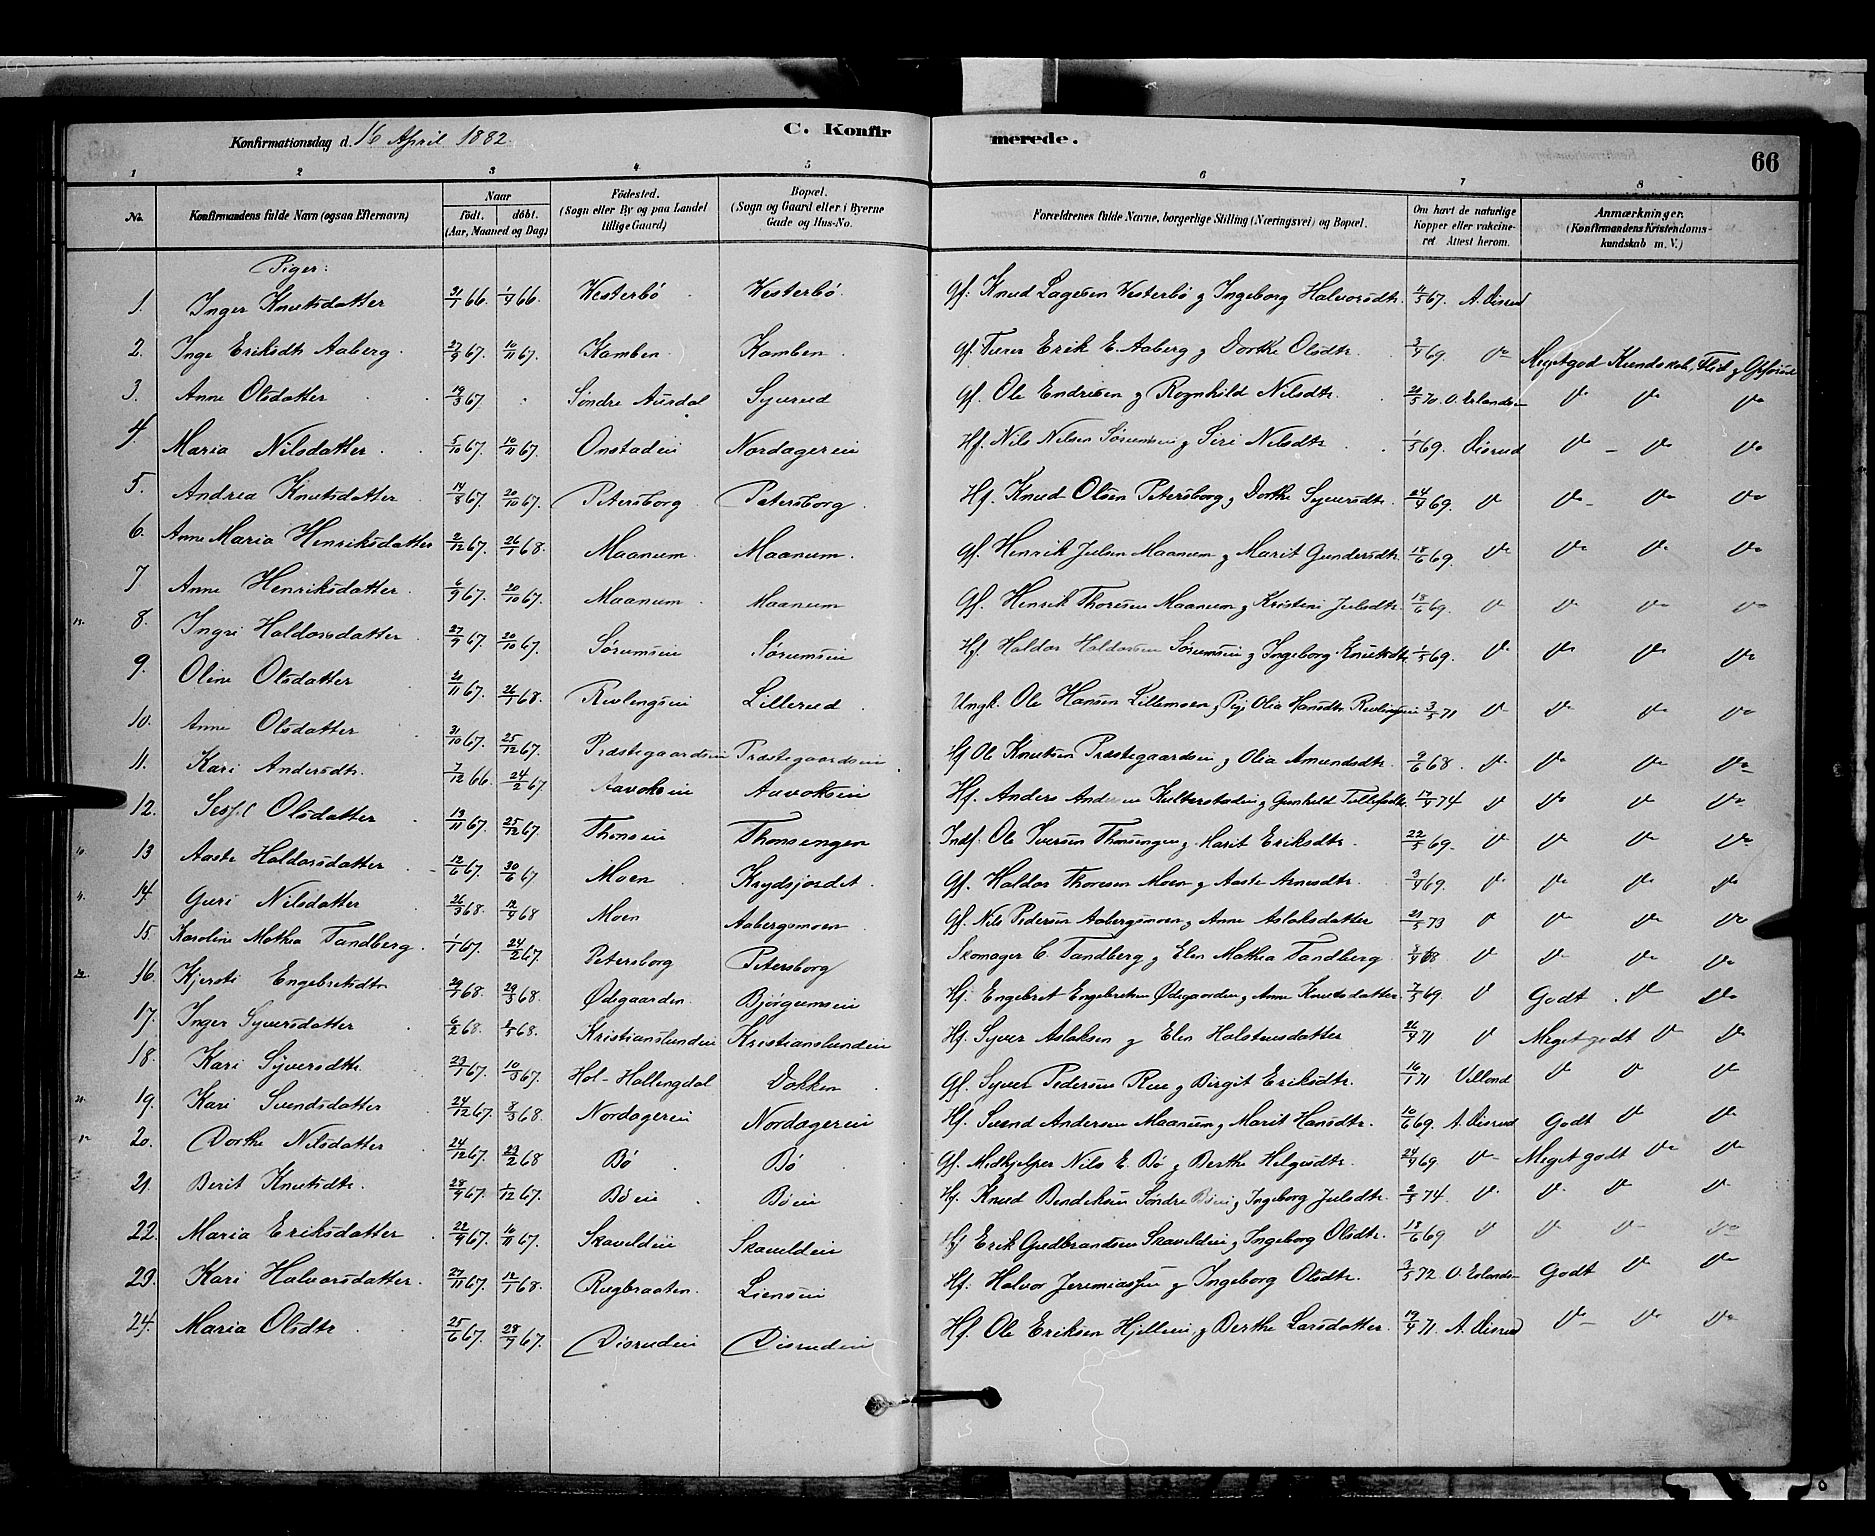 Konfirmationsdag d. 16 April 1882. C. Konfirmerede. 66
1 2 3 4 5 6 7 8
No. Konfirmandens fulde Navn (ogsaa Efternavn) Naar födt. döbt. (Aar, Maaned og Dag) Födested. (Sogn eller By og paa Landet tillige Gaard) Bopæl. (Sogn og Gaard eller i Byerne Gade og Hus-No. Forældrenes fulde Navne, borgerlige Stilling (Næringsvei) og Bopæl. Om havt de naturlige Kopper eller vakcineret Attest herom. Anmærkninger. (Konfirmandens Kristendomskundskab m. V.)
Piger:
1. Inger Knutsdatter 31/1 66. 1/4 66. Westerbö Westerbö. Gf: Knud Lagesen Westerbö g Ingeborg Halvorsdtr. 67. A. Disrud
2. Inge Eriksdtr Aaberg. 27/9 67. 10/11 67. Kamben Kamben. Gf. Erik E. Aaberg g Dorthe Olsdtr. 69. Do Megetgod Kundskab, Flid g Opförsel
3. Anne Olsdatter 19/3 67. Söndre Aurdal Gf. Ole Endresen g Rognhild Nilsdtr. 70. O. Erlandsen Do Do Do
4. Maria Nilsdatter. 5/10 67. 10/11 67. Onstadeii Nordagereii Hf. Nils Nilsen g Siri Nilsdtr 1/5 69. Disrud Do - Do Do
5. Andrea Knutsdatter 14/8 67. 20/10 67. Petersborg Petersborg. Hf. Knud Olsen Petersborg g Dorthe Syversdtr. 24/9 69. Do Do Do Do
6. Anne Maria Henriksdatter 2/12 67. 26/1 68. Maanum. Maanum. Gf. Henrik Julsen Maanum g Marit Gundersdtr. 18/6 69. Do Do Do Do
7. Anne Henriksdatter. 6/9 67. 20/10 67. Maanum Maanum Gf. Henrik Thoresen Maanum g Kristine Julsdtr. 18/6 69. Do Do Do Do
8. Ingri Haldorsdatter 27/9 67. 20/10 67. Sörumseii Sörumseii Hf. Haldor Haldorsen Sörumseii g Ingeborg Knutsdtr. 1/5 69. Do Do Do Do
9. Oline Olsdatter 21/11 67. 26/1 68. Revlingseii Lillerud. Ungk. Ole Hansen Lillemoen g Pig Olia Hansdtr Revlingseii 3/5 71 Do Do Do Do
10. Anne Olsdatter 31/10 67. 25/12 67. Præstegaardseii Præstegaardseii Hf Ole Knutsen Præstegaardseii g Olia Amundsdtr. 9/6 68. Do Do Do Do
11. Kari Andersdtr. 7/12 66. 24/2 67 Aavokseii Aavokseii Hf. Anders Andersen g Gunhild 74 Do Do Do Do
12. Olsdatter 13/11 67. 25/12 67. Thonseii Thonsengen Inds. Ole Iversen Thonsengen g Marit Eriksdtr. 22/5 69. Do Do Do Do
13 Aaste Haldorsdatter 12/6 67. 30/6 67 Moen Krydsjordet. Gf. Haldor Thoresen Moen g Aaste Arnesdtr. 3/4 69. Do Do Do Do
14. Guri Nilsdatter 26/3 68. 12/4 68 Moen Aabergsmoen Gf. Nils Pedersen Aabergsmoen g Anne Aslaksdatter 21/5 73 Do Do Do Do
15. Karoline Mathea Tandberg. 1/1 67. 24/2 67. Petersborg Petersborg Skomager C. Tandberg g Elen Mathea Tandberg 68 Do Do Do Do
16. Kjersti Engebretsdtr 29/1 68. 29/3 68. Ødegaarden Bjögumseii Hf. Engebret Engebretsen Ødegaarden g Anne Knutsdatter 7/5 69 Do Godt. Do Do
17. Inger Syversdatter 6/2 68. 68. Kristianslundeii Kristianslundeii Hf. Syver Aslaksen g Elen Halstensdatter 26/4 71 Do Megetgodt Do Do
18. Kari Syversdtr. 23/1 67. 10/3 67. Hol-Hallingdal Dokken Gf. Syver Pedersen Rue g Birgit Eriksdtr. 16/1 71 Do Do Do
19. Kari Svendsdatter 24/12 67. 8/3 68. Nordagereii Nordagereii Hf. Svend Andersen Maanum g Marit Hansdtr. 10/6 69. A. Disrud Godt Do Do
20. Dorthe Nilsdatter 24/12 67. 23/2 68 Bö Bö Gf. Medhjelper Nils E. Bö g Berthe Helgesdtr. 24/9 69 Do Megetgodt Do Do
21 Berit Knutsdtr. 28/9 67. 1/12 67. Böeii Böeii Hf. Knud Bendiksen Söndre Böeii g Ingeborg Julsdtr. 2/5 74. Do Do Do Do
22. Maria Eriksdatter 22/9 67. 10/11 67. Skaveldeii Skaveldeii Hf Erik Gudbrandsen Skaveldeii g Ingeborg Olsdtr. 18/6 69 Do Do Do Do
23. Kari Halvorsdatter. 27/11 67. 12/1 68. Rugbraaten Lienseii Hf. Halvor Jeremiassen g Ingeborg Olsdtr. 3/5 72 O. Erlandsen Godt Do Do
24. Maria Olsdtr 25/6 67. 28/7 67. Disrudeii Disrudeii Hf. Ole Eriksen Hjelleeii g Berthe Larsdatter. 19/4 71. A. Disrud Do Do Do